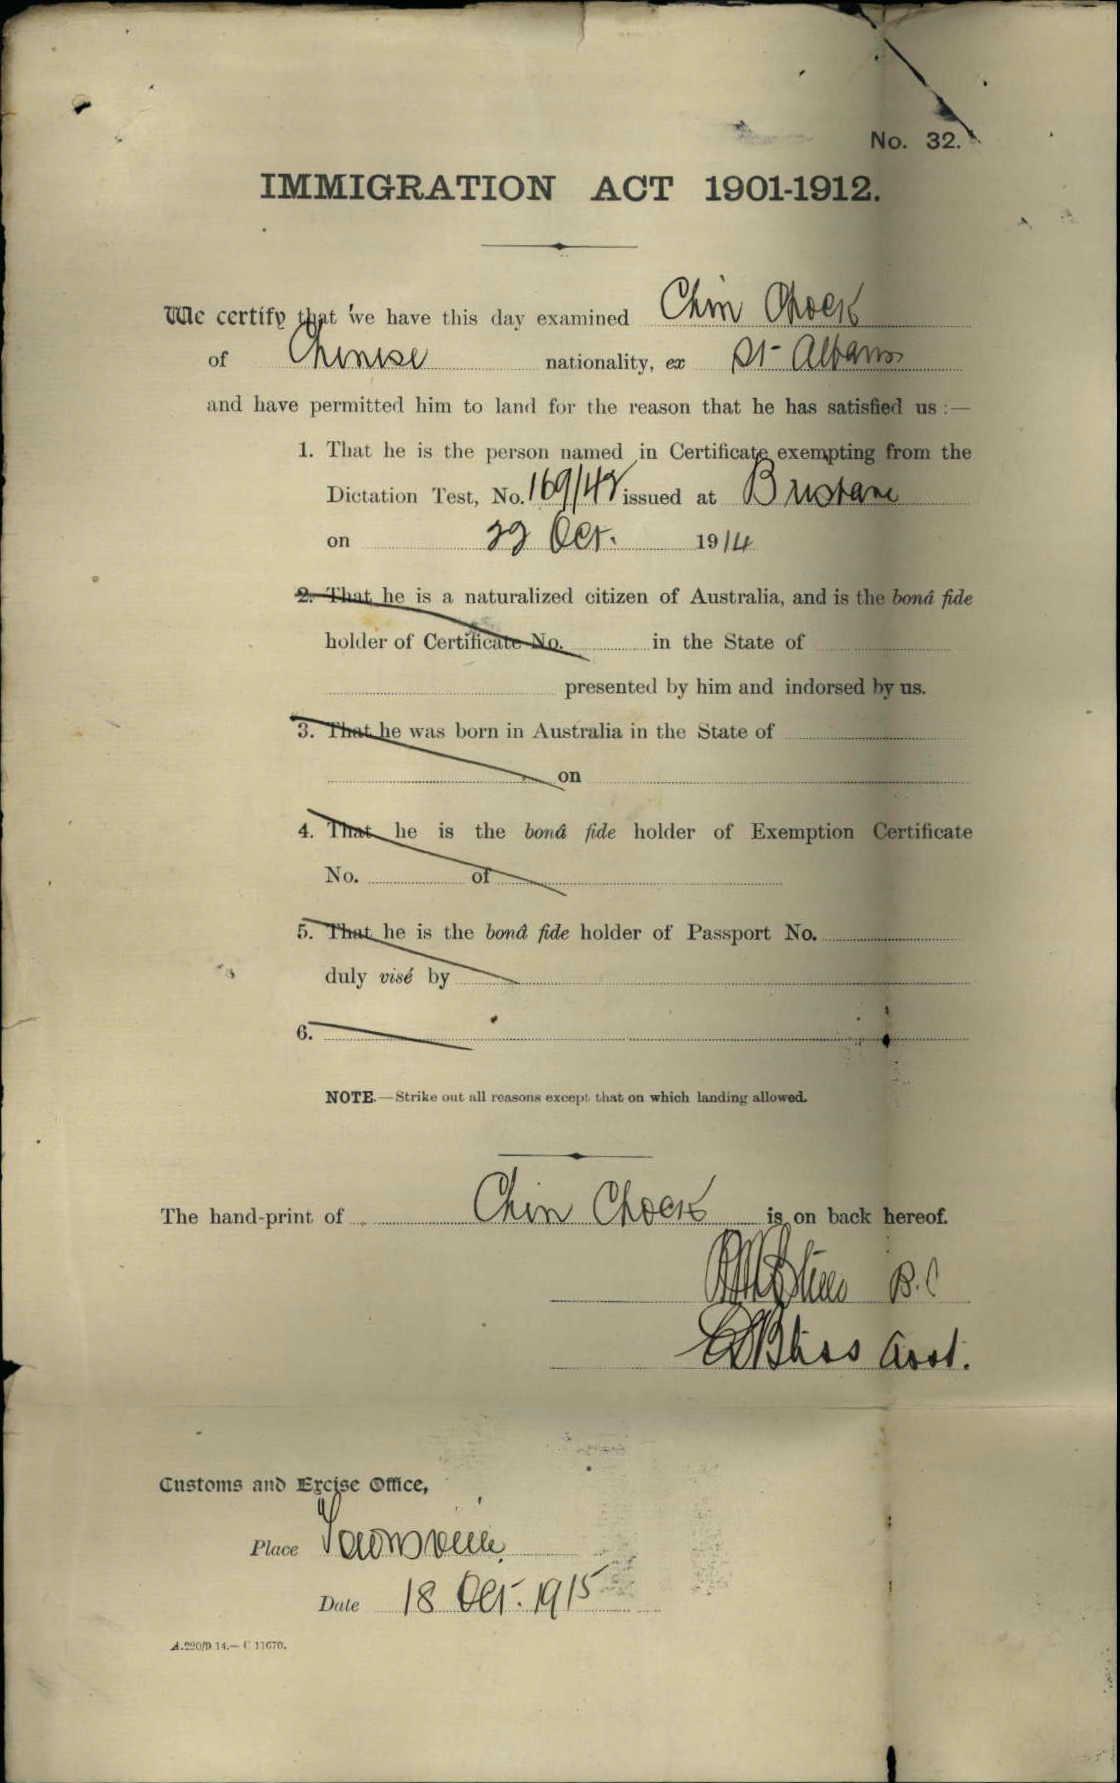 No. 32.
IMMIGRATION ACT 1901-1912.
We certify that we have this day examined Chin Chock
of Chinese nationality, ex St Albans
and have permitted him to land for the reason that he has satisfied us :—
1. That he is the person named in Certificate exempting from the
Dictation Test, No. 169/48 issued at Brisbane
on 22 Oct. 1914
2. That he is a naturalized citizen of Australia, and is the bonâ fide
holder of Certificate No. in the State of
presented by him and indorsed by us.
3. That he was born in Australia in the State of
on
4. That he is the bonâ fide holder of Exemption Certificate
No. of
5. That he is the bonâ fide holder of Passport No.
duly visé by
6.
NOTE.—Strike out all reasons except that on which landing allowed.
The hand-print of Chin Chock is on back hereof.
B.C
Bliss Asst.
Customs and Excise Office,
Place Townsville
Date 18 Oct. 1915
A.220/9.14.— C 11670.